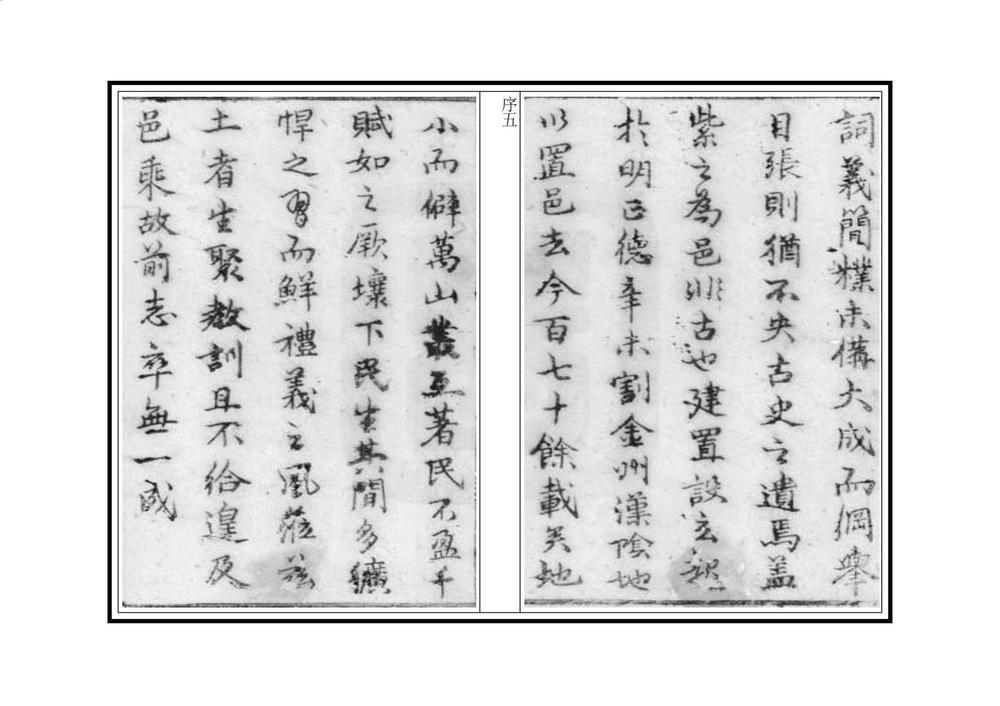 詞義簡樸未備大成而綱舉
目張則猶不失古史之遺焉蓋
紫之為邑非古也建置設立
於明正德辛未割金州漢陰地
以置邑去今百七十餘載矣地
序五
小而僻萬山叢互著民不盈千
賦如之厥壤下民生其間多獷
悍之習而鮮禮義之風蒞茲
土者生聚教訓且不給遑及
邑乘故前志卒無一成